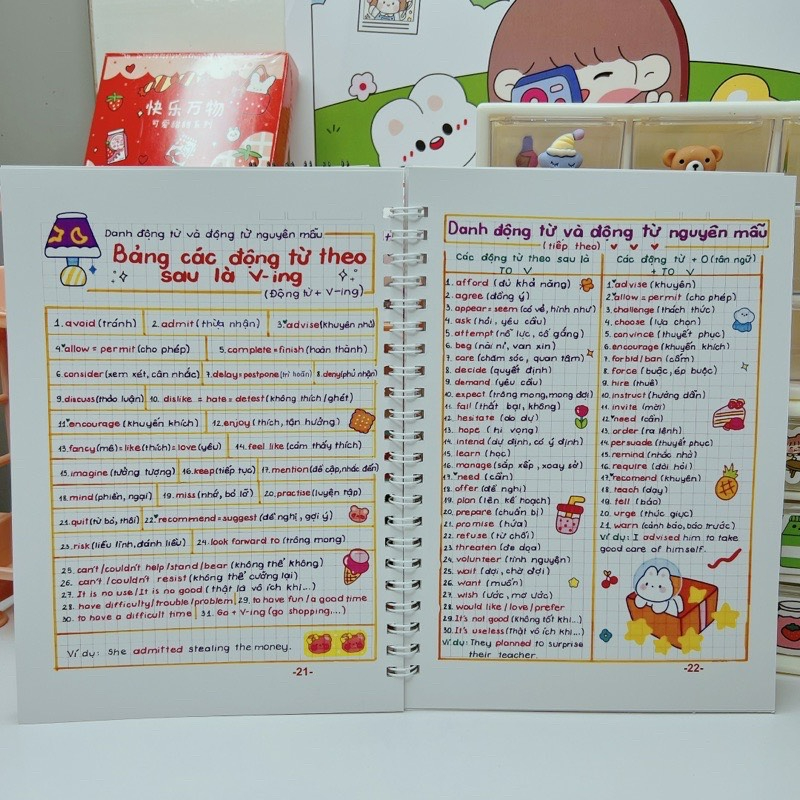 快乐万物
可爱甜甜系列
Danh động từ và động từ nguyên mẫu
Bảng các động từ theo
sau là V-ing
(Động từ + V-ing)
1. avoid (tránh) 2. admit (thừa nhận) 3. advise (khuyên nhủ)
4. allow = permit (cho phép) 5. complete = finish (hoàn thành)
6. consider (xem xét, cân nhắc) 7. delay = postpone (trì hoãn) 8. deny (phủ nhận)
9. discuss (thảo luận) 10. dislike = hate = detest (không thích / ghét)
11. encourage (khuyến khích) 12. enjoy (thích, tận hưởng)
13. fancy (mê) = like (thích) = love (yêu) 14. feel like (cảm thấy thích)
15. imagine (tưởng tượng) 16. keep (tiếp tục) 17. mention (đề cập, nhắc đến)
18. mind (phiền, ngại) 19. miss (nhớ, bỏ lỡ) 20. practise (luyện tập)
21. quit (từ bỏ, thôi) 22. recommend = suggest (đề nghị, gợi ý)
23. risk (liều lĩnh, đánh liều) 24. look forward to (trông mong)
25. can't / couldn't help / stand / bear (không thể không)
26. can't / couldn't resist (không thể cưỡng lại)
27. It is no use / It is no good (thật là vô ích khi...)
28. have difficulty / trouble / problem 29. to have fun / a good time
30. to have a difficult time 31. Go + V-ing (go shopping,...)
Ví dụ: She admitted stealing the money.
-21-
Danh động từ và động từ nguyên mẫu
(tiếp theo)
Các động từ theo sau là
TO V
1. afford (đủ khả năng)
2. agree (đồng ý)
3. appear = seem (có vẻ, hình như)
4. ask (hỏi, yêu cầu)
5. attempt (nỗ lực, cố gắng)
6. beg (nài nỉ, van xin)
7. care (chăm sóc, quan tâm)
8. decide (quyết định)
9. demand (yêu cầu)
10. expect (trông mong, mong đợi)
11. fail (thất bại, không)
12. hesitate (do dự)
13. hope (hi vọng)
14. intend (dự định, có ý định)
15. learn (học)
16. manage (sắp xếp, xoay sở)
17. need (cần)
18. offer (đề nghị)
19. plan (lên kế hoạch)
20. prepare (chuẩn bị)
21. promise (hứa)
22. refuse (từ chối)
23. threaten (đe dọa)
24. volunteer (tình nguyện)
25. wait (đợi, chờ đợi)
26. want (muốn)
27. wish (ước, mơ ước)
28. would like / love / prefer
29. It's not good (không tốt khi...)
30. It's useless (Thật vô ích khi...)
Ví dụ: They planned to surprise
their teacher.
Các động từ + O (tân ngữ)
+ TO V
1. advise (khuyên)
2. allow = permit (cho phép)
3. challenge (thách thức)
4. choose (lựa chọn)
5. convince (thuyết phục)
6. encourage (khuyến khích)
7. forbid / ban (cấm)
8. force (buộc, ép buộc)
9. hire (thuê)
10. instruct (hướng dẫn)
11. invite (mời)
12. need (cần)
13. order (ra lệnh)
14. persuade (thuyết phục)
15. remind (nhắc nhở)
16. require (đòi hỏi)
17. recomend (khuyên)
18. teach (dạy)
19. tell (bảo)
20. urge (thúc giục)
21. warn (cảnh báo, báo trước)
Ví dụ: I advised him to take
good care of himself.
-22-